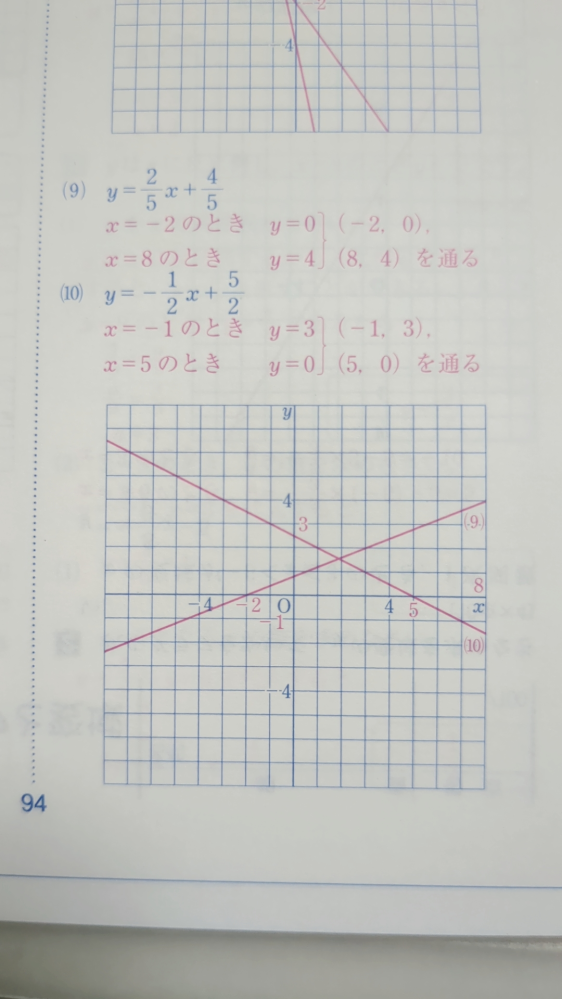 2
-4
(9) y=2/5x+4/5
x=-2のとき y=0 (-2, 0),
x=8のとき y=4 (8, 4) を通る
(10) y=-1/2x+5/2
x=-1のとき y=3 (-1, 3),
x=5のとき y=0 (5, 0) を通る
y
4
3
(9)
8
-4 -2 O 4 5 x
-1
(10)
-4
94